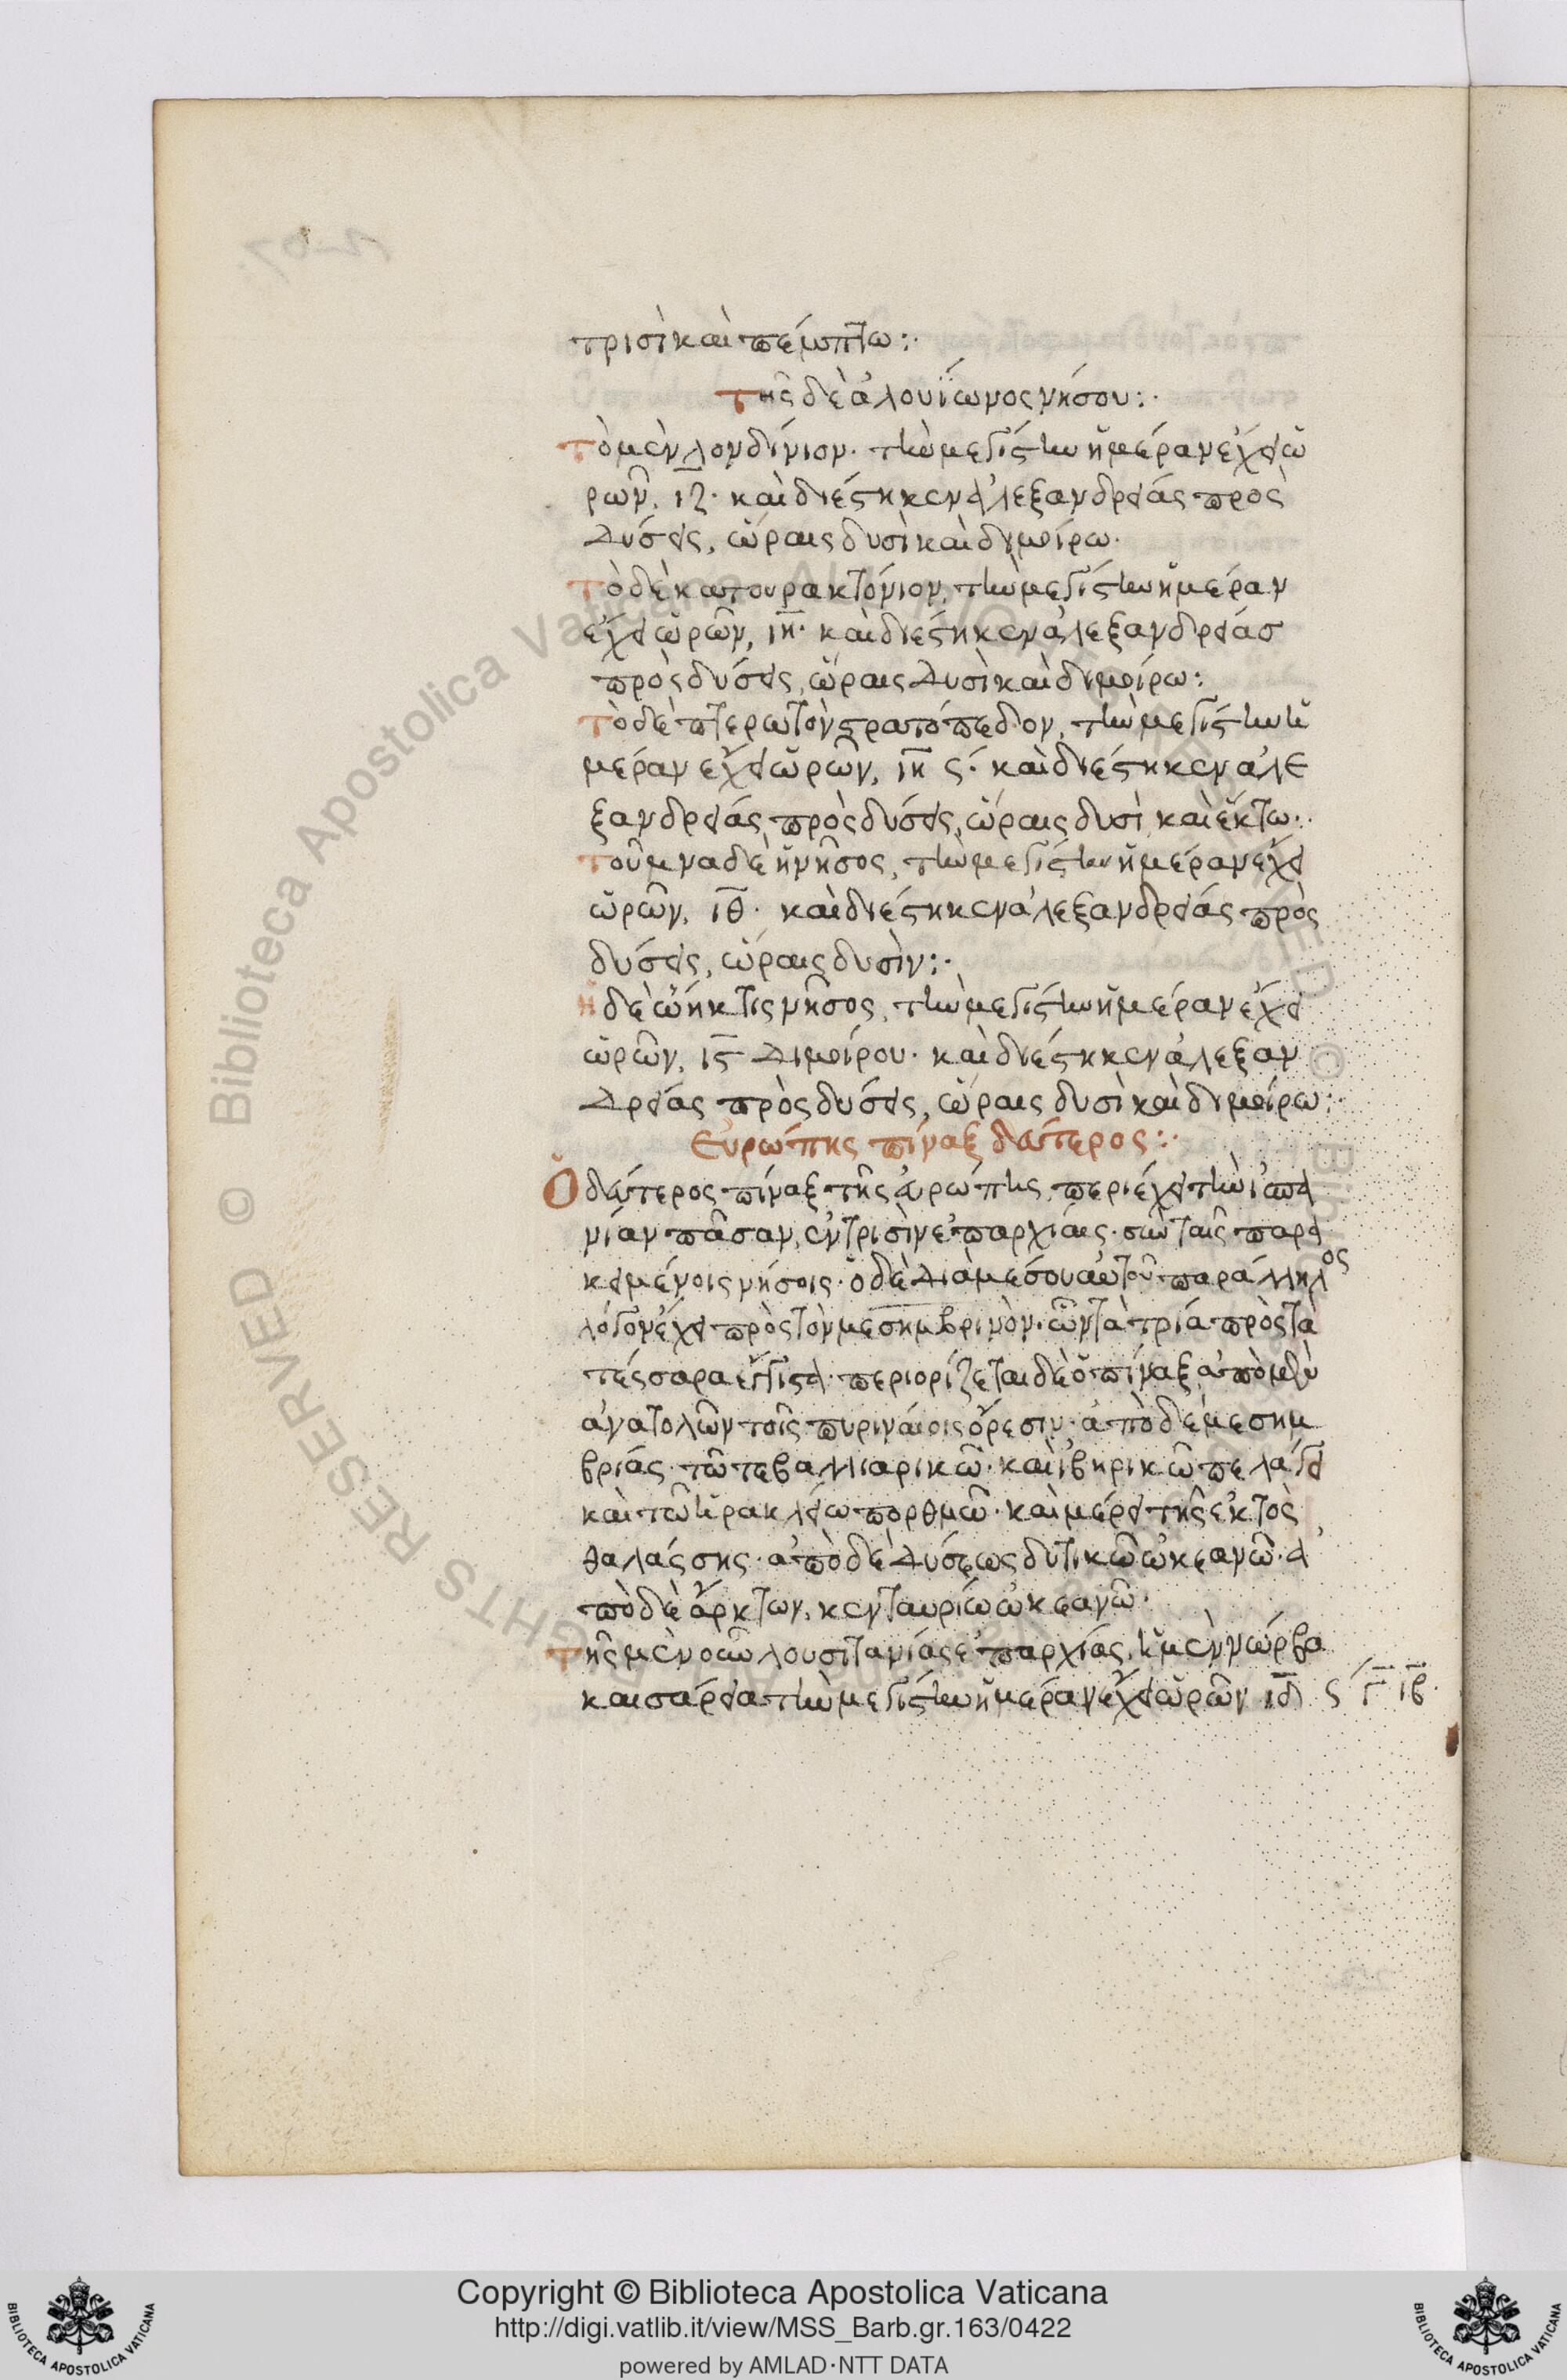 τρισὶ καὶ πέμπτω:·
τῆς δὲ ἀλουΐωνος νήσου:·
τὸ μὲν λονδίνιον· τὴν μεγίστην ἡμέραν ἔχει ὡ
ρῶν, ιζ· καὶ διέστηκεν ἀλεξανδρείας πρὸς
δύσεις, ὥραις δυσὶ καὶ διμοίρω·
τὸ δὲ κατουρακτόνιον, τὴν μεγίστην ἡμέραν
ἔχει ὡρῶν, ιη· καὶ διέστηκεν ἀλεξανδρείας
πρὸς δύσεις, ὥραις δυσὶ καὶ διμοίρω:
τὸ δὲ πτερωτὸν στρατόπεδον, τὴν μεγίστην ἡ
μέραν ἔχει ὡρῶν, ιη ς· καὶ διέστηκεν ἀλε
ξανδρείας πρὸς δύσεις, ὥραις δυσὶ καὶ ἕκτω:·
τοῦμνα δὲ ἡ νῆσος, τὴν μεγίστην ἡμέραν ἔχει
ὡρῶν, ιθ· καὶ διέστηκεν ἀλεξανδρείας πρὸς
δύσεις, ὥραις δυσὶν:·
ἡ δὲ ὠήκτις νῆσος, τὴν μεγίστην ἡμέραν ἔχει
ὡρῶν, ις διμοίρου· καὶ διέστηκεν ἀλεξαν
δρείας πρὸς δύσεις, ὥραις δυσὶ καὶ διμοίρω:·
Εὐρώπης πίναξ δεύτερος:·
Ὁ δεύτερος πίναξ τῆς εὐρώπης, περιέχει τὴν ἱσπα
νίαν πᾶσαν, ἐν τρισὶν ἐπαρχίαις· σὺν ταῖς παρα
κειμέναις νήσοις· ὁ δὲ διὰ μέσου αὐτοῦ παράλληλος
λόγον ἔχει πρὸς τὸν μεσημβρινὸν· ὧν τὰ τρία πρὸς τὰ
τέσσαρα ἔγγιστα· περιορίζεται δὲ ὁ πίναξ, ἀπὸ μὲν
ἀνατολῶν τοῖς πυριναίοις ὄρεσιν· ἀπὸ δὲ μεσημ
βρίας· τῶ τε βαλλιαρικῶ· καὶ ἰβηρικῶ πελάγει
καὶ τῶ ἡρακλείω πορθμῶ· καὶ μέρει τῆς ἐκτὸς
θαλάσσης· ἀπὸ δὲ δύσεως δυτικῶ ὠκεανῶ· ἀ
πὸ δὲ ἄρκτων, κενταυρίω ὠκεανῶ·
τῆς μὲν οὖν λουσιτανίας ἐπαρχίας, ἡ μὲν νώρβα
καισάρεια τὴν μεγίστην ἡμέραν ἔχει ὡρῶν ιδ ς γ ιβ·
Biblioteca Apostolica Vaticana
Copyright © Biblioteca Apostolica Vaticana
http://digi.vatlib.it/view/MSS_Barb.gr.163/0422
powered by AMLAD·NTT DATA